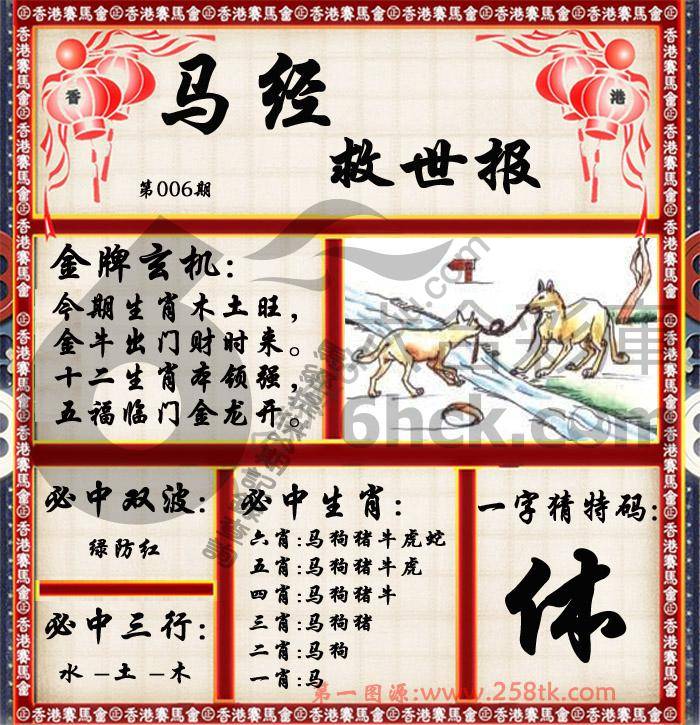 香港賽馬會
香
港
马经
救世报
第006期
金牌玄机:
今期生肖木土旺,
金牛出门财时来。
十二生肖本领强,
五福临门金龙开。
六合彩庫
6hck.com
必中双波:
绿防红
必中三行:
水-土-木
必中生肖:
六肖:马狗猪牛虎蛇
五肖:马狗猪牛虎
四肖:马狗猪牛
三肖:马狗猪
二肖:马狗
一肖:马
一字猜特码:
体
第一图源:www.258tk.com